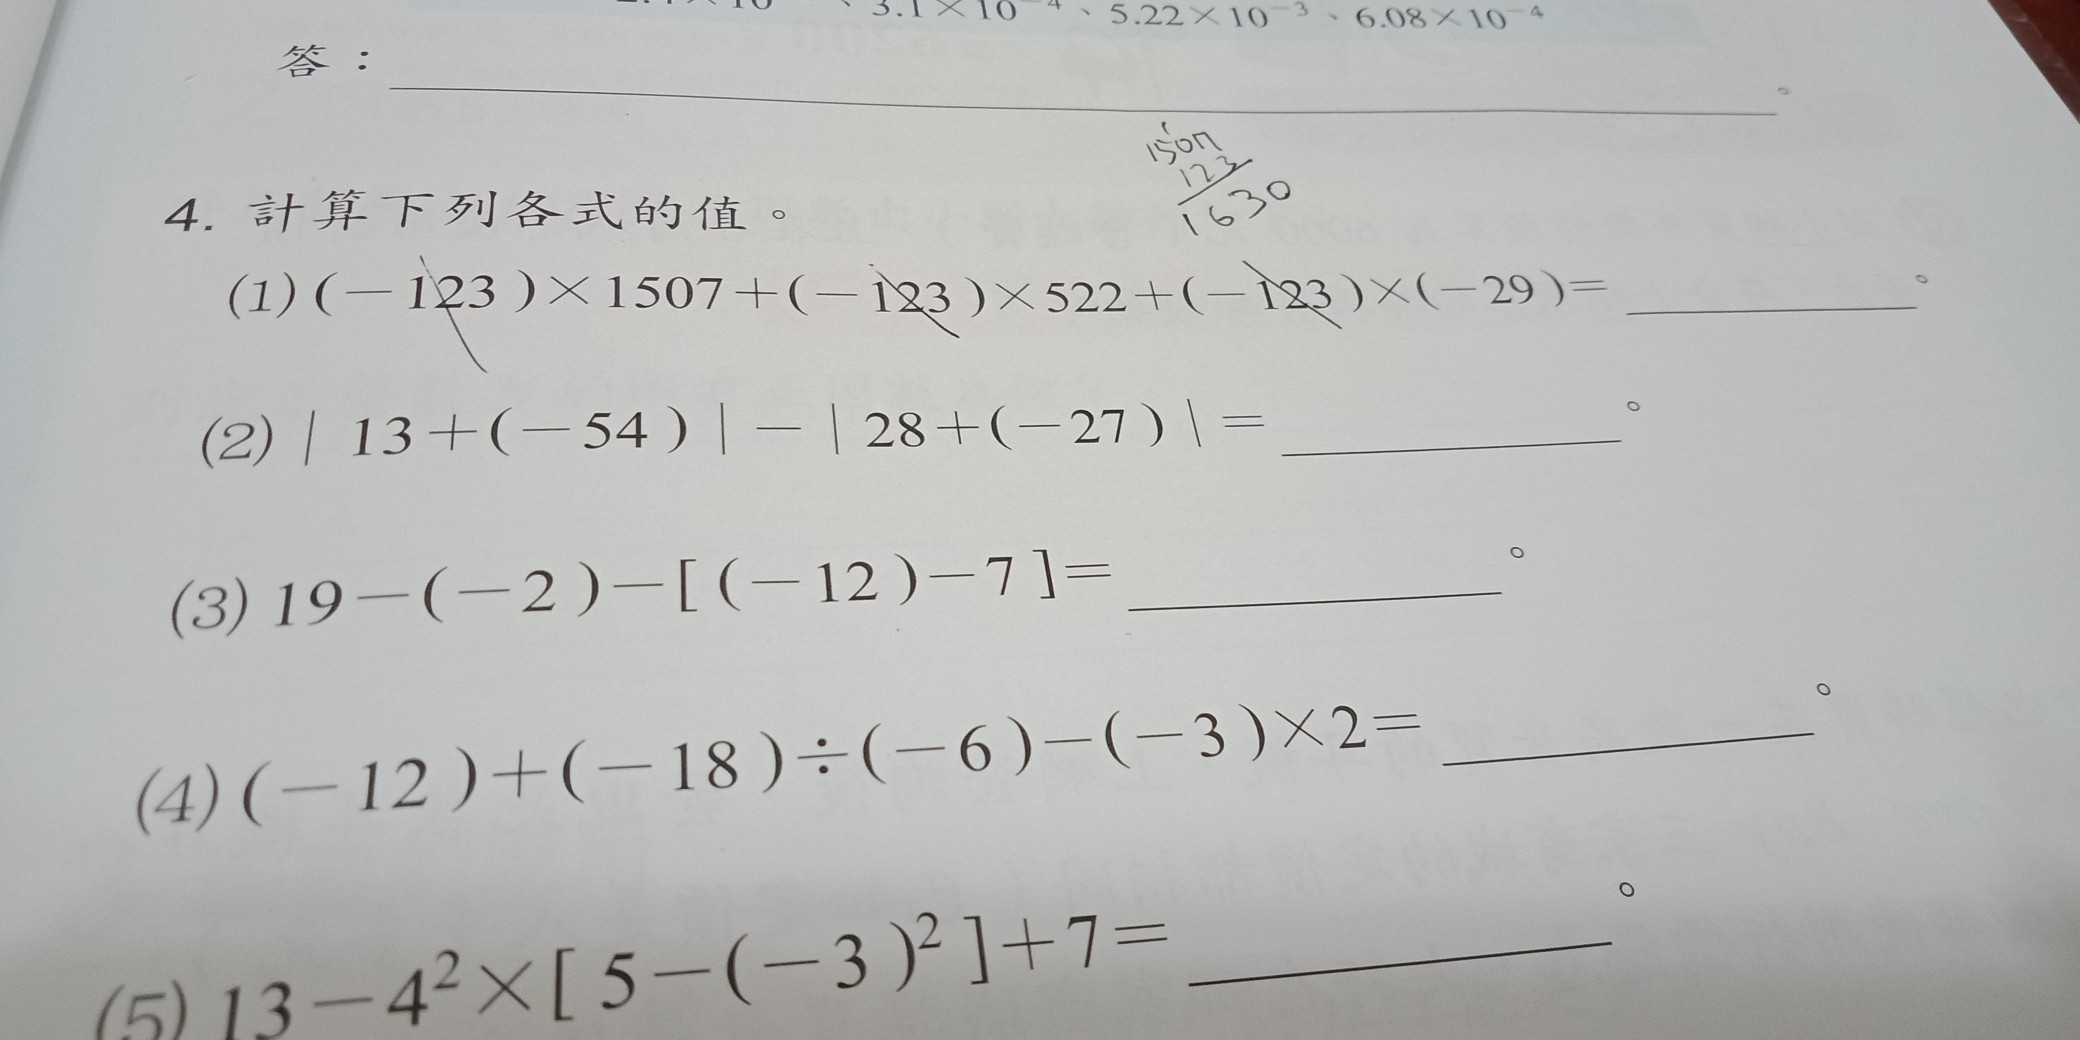 3.1×10⁻⁴、5.22×10⁻³、6.08×10⁻⁴
答：＿＿＿＿。
1507
123
1630
4. 計算下列各式的值。
(1)(－123)×1507＋(－123)×522＋(－123)×(－29)＝＿＿＿＿。
(2)| 13＋(－54)|－| 28＋(－27)|＝＿＿＿＿。
(3) 19－(－2)－[(－12)－7]＝＿＿＿＿。
(4)(－12)＋(－18)÷(－6)－(－3)×2＝＿＿＿＿。
(5) 13－4²×[5－(－3)²]＋7＝＿＿＿＿。